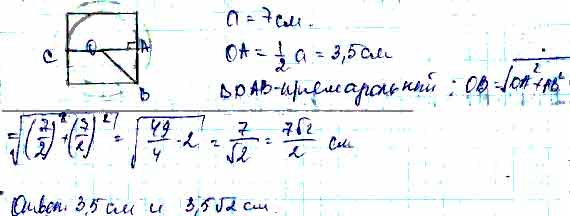 a = 7 см.
C O A B
OA = 1/2 a = 3,5 см
ΔOAB - прямоугольный : OB = √(OA² + AB²)
= √((7/2)² + (7/2)²) = √(49/4 · 2) = 7/√2 = 7√2/2 см
Ответ: 3,5 см и 3,5√2 см.